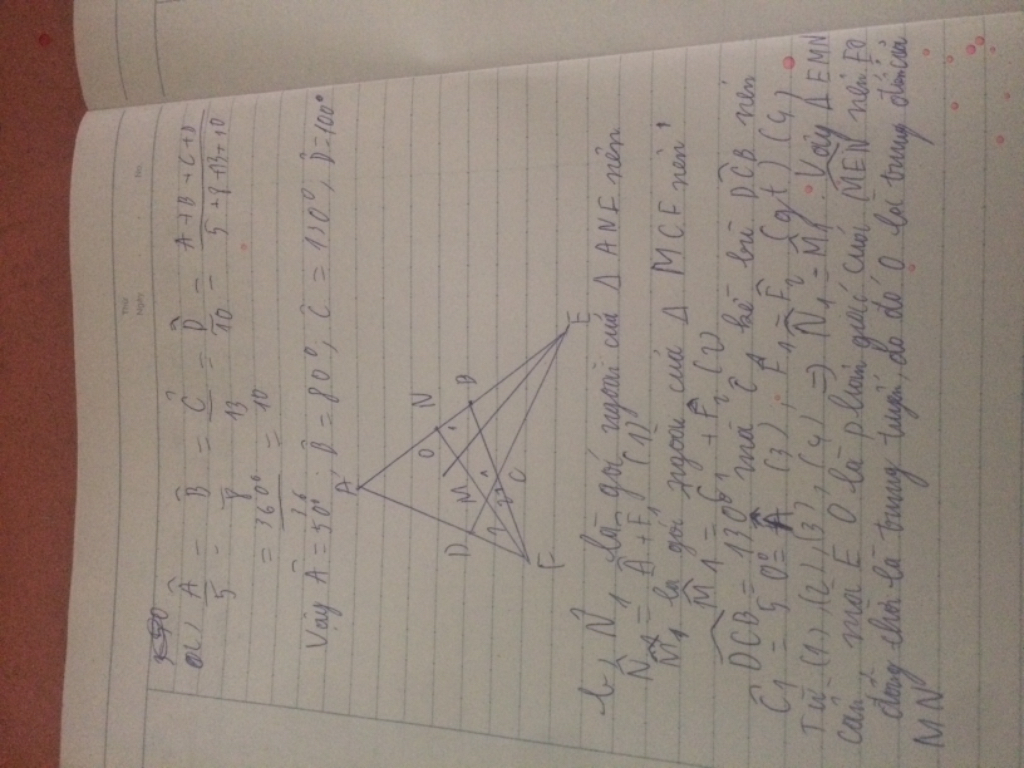 Thứ
Ngày
No.
a, Â/5 = B̂/8 = Ĉ/13 = D̂/10 = A+B+C+D/5+8+13+10
= 360°/36 = 10
Vậy Â = 50°; B̂ = 80°, Ĉ = 130°, D̂ = 100°
A
D M O N
B
2 1 1
F C
E
b, N̂1 là góc ngoài của Δ ANF nên
N̂1 = Â + F̂1 (1)
M̂1 là góc ngoài của Δ MCF nên
M̂1 = Ĉ1 + F̂2 (2)
DCB = 130° mà Ĉ1 kề bù DCB nên
Ĉ1 = 50° = Â (3), F̂1 = F̂2 (gt) (4)
Từ (1), (2), (3), (4) => N̂1 = M̂1. Vậy Δ EMN
cân mà EO là phân giác của MEN nên EO
đồng thời là trung tuyến, do đó O là trung điểm của
MN